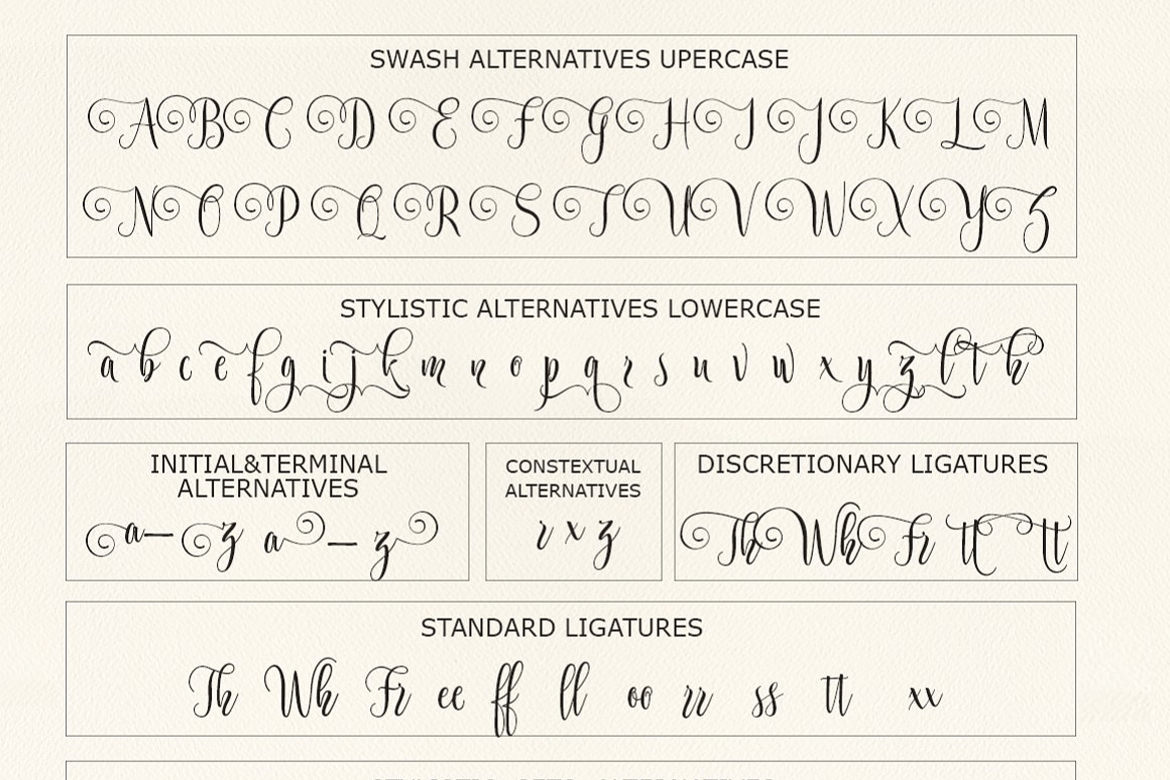 SWASH ALTERNATIVES UPERCASE
A B C D E F G H I J K L M
N O P Q R S T U V W X Y Z
STYLISTIC ALTERNATIVES LOWERCASE
a b c e f g i j k m n o p q r s u v w x y z l t h
INITIAL&TERMINAL
ALTERNATIVES
a — z a — z
CONSTEXTUAL
ALTERNATIVES
r x z
DISCRETIONARY LIGATURES
Th Wh Fr tt tt
STANDARD LIGATURES
Th Wh Fr ee ff ll oo rr ss tt xx